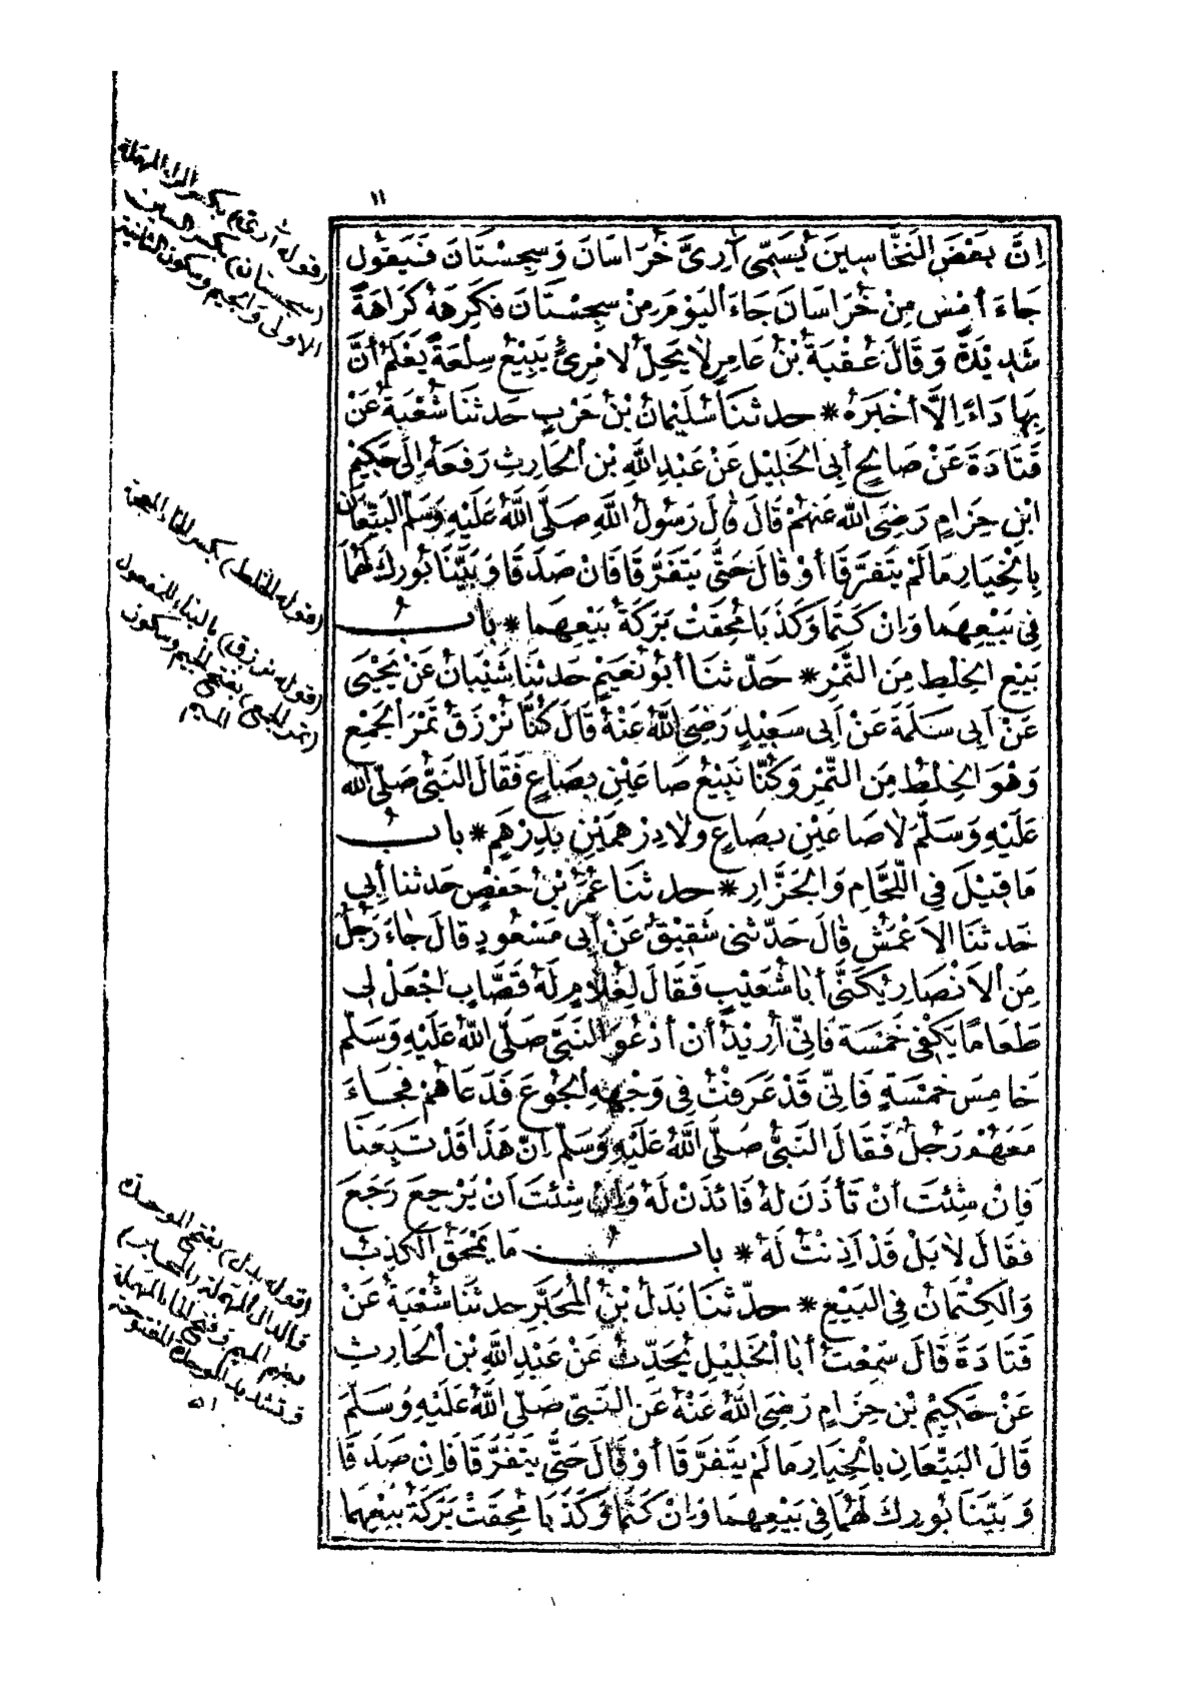 ١١
اِنَّ بَعْضَ النَّخَّاسِينَ يُسَمِّى آرِىَّ خُرَاسَانَ وَسِجِسْتَانَ فَيَقُولُ
جَاءَ اَمْسِ مِنْ خُرَاسَانَ جَاءَ الْيَوْمَ مِنْ سِجِسْتَانَ فَكَرِهَهُ كَرَاهَةً
شَدِيْدَةً وَقَالَ عُقْبَةُ بْنُ عَامِرٍ لَا يَحِلُّ لِامْرِئٍ يَبِيْعُ سِلْعَةً يَعْلَمُ أَنَّ
بِهَا دَاءً اِلَّا أَخْبَرَهُ * حدثنا سُلَيْمَانُ بْنُ حَرْبٍ حَدثنَا شُعْبَةُ عَنْ
قَتَادَةَ عَنْ صَالِحٍ أَبِى الْخَلِيْلِ عَنْ عَبْدِ اللَّهِ بْنِ الْحَارِثِ رَفَعَهُ اِلَى حَكِيْمِ
ابْنِ حِزَامٍ رَضِىَ اللَّهُ عَنْهُمْ قَالَ قَالَ رَسُولُ اللَّهِ صَلَّى اللَّهُ عَلَيْهِ وَسَلَّمَ الْبَيِّعَانِ
بِالْخِيَارِ مَا لَمْ يَتَفَرَّقَا أَوْ قَالَ حَتَّى يَتَفَرَّقَا فَاِنْ صَدَقَا وَبَيَّنَا بُورِكَ لَهُمَا
فِى بَيْعِهِمَا وَاِنْ كَتَمَا وَكَذَبَا مُحِقَتْ بَرَكَةُ بَيْعِهِمَا * بَابُ
بَيْعِ الْخِلْطِ مِنَ التَّمْرِ * حَدّثنَا أَبُو نُعَيْمٍ حَدثنَا شَيْبَانُ عَنْ يَحْيَى
عَنْ اَبِى سَلَمَةَ عَنْ اَبِى سَعِيْدٍ رَضِىَ اللَّهُ عَنْهُ قَالَ كُنَّا نُرْزَقُ تَمْرَ الْجَمْعِ
وَهْوَ الْخِلْطُ مِنَ التَّمْرِ وَكُنَّا نَبِيْعُ صَاعَيْنِ بِصَاعٍ فَقَالَ النَّبِىُّ صَلَّى اللَّهُ
عَلَيْهِ وَسَلَّمَ لَا صَاعَيْنِ بِصَاعٍ وَلَا دِرْهَمَيْنِ بِدِرْهَمٍ * بابُ
مَا قِيْلَ فِى اللَّحَّامِ وَالْجَزَّارِ * حدثنا عُمَرُ بْنُ حَفْصٍ حَدثنا أَبِى
حَدثنَا الاَعْمَشُ قَالَ حَدّثنى شَقِيْقٌ عَنْ أَبِى مَسْعُودٍ قَالَ جَاءَ رَجُلٌ
مِنَ الاَنْصَارِ يُكَنَّى أَبَا شُعَيْبٍ فَقَالَ لِغُلَامٍ لَهُ قَصَّابٍ اجْعَلْ لِى
طَعَامًا يَكْفِى خَمْسَةً فَاِنِّى أُرِيْدُ أَنْ أَدْعُوَ النَّبِىَّ صَلَّى اللَّهُ عَلَيْهِ وَسَلَّمَ
خَامِسَ خَمْسَةٍ فَاِنِّى قَدْ عَرَفْتُ فِى وَجْهِهِ الْجُوعَ فَدَعَاهُمْ فَجَاءَ
مَعَهُمْ رَجُلٌ فَقَالَ النَّبِىُّ صَلَّى اللَّهُ عَلَيْهِ وَسَلَّمَ اِنَّ هَذَا قَدْ تَبِعَنَا
فَاِنْ شِئْتَ اَنْ تَأْذَنَ لَهُ فَائْذَنْ لَهُ وَاِنْ شِئْتَ اَنْ يَرْجِعَ رَجَعَ
فَقَالَ لَا بَلْ قَدْ اَذِنْتُ لَهُ * بابُ مَا يَمْحَقُ الْكَذِبُ
وَالْكِتْمَانُ فِى الْبَيْعِ * حدّثنَا بَدَلُ بْنُ الْمُحَبَّرِ حدثنَا شُعْبَةُ عَنْ
قَتَادَةَ قَالَ سَمِعْتُ أَبَا الْخَلِيْلِ يُحَدِّثُ عَنْ عَبْدِ اللَّهِ بْنِ الْحَارِثِ
عَنْ حَكِيْمِ بْنِ حِزَامٍ رَضِىَ اللَّهُ عَنْهُ عَنِ النَّبِىِّ صَلَّى اللَّهُ عَلَيْهِ وَسَلَّمَ
قَالَ الْبَيِّعَانِ بِالْخِيَارِ مَا لَمْ يَتَفَرَّقَا أَوْ قَالَ حَتَّى يَتَفَرَّقَا فَاِنْ صَدَقَا
وَبَيَّنَا بُورِكَ لَهُمَا فِى بَيْعِهِمَا وَاِنْ كَتَمَا وَكَذَبَا مُحِقَتْ بَرَكَةُ بَيْعِهِمَا
(قوله آرىّ) بكسر الراء المهملة
(سجستان) بكسر السين
الاولى والجيم وسكون الثانية
(قوله الخلط) بكسر الخاء المعجمة
(قوله نرزق) بالبناء للمفعول
(تمر الجمع) بفتح الجيم وسكون
الميم
(قوله بدل) بفتح الموحدة
فالدال المهملة (المحبر)
بضم الميم وفتح الحاء المهملة
وتشديد الموحدة المفتوحة
اه